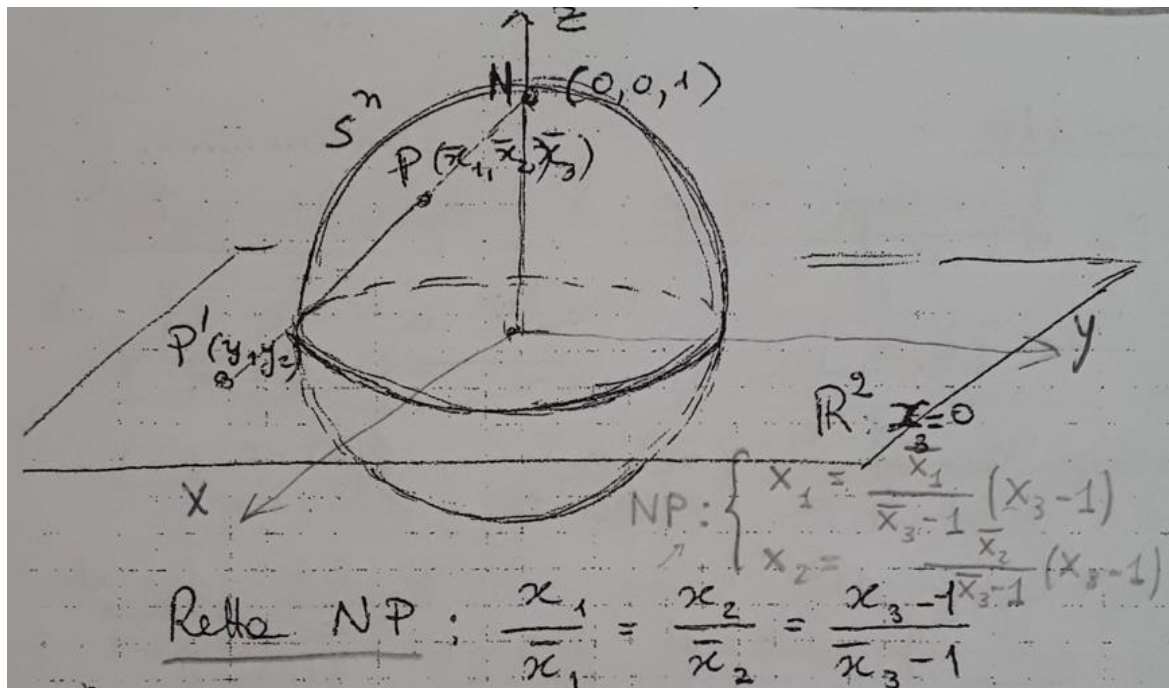 Z
N (0,0,1)
Sⁿ
P(x̄₁, x̄₂, x̄₃)
P'(y₁, y₂)
y
ℝ²: x₃=0
X
NP: { x₁ = x̄₁/(x̄₃-1) (x₃-1)
x₂ = x̄₂/(x̄₃-1) (x₃-1)
Retta NP: x₁/x̄₁ = x₂/x̄₂ = (x₃-1)/(x̄₃-1)